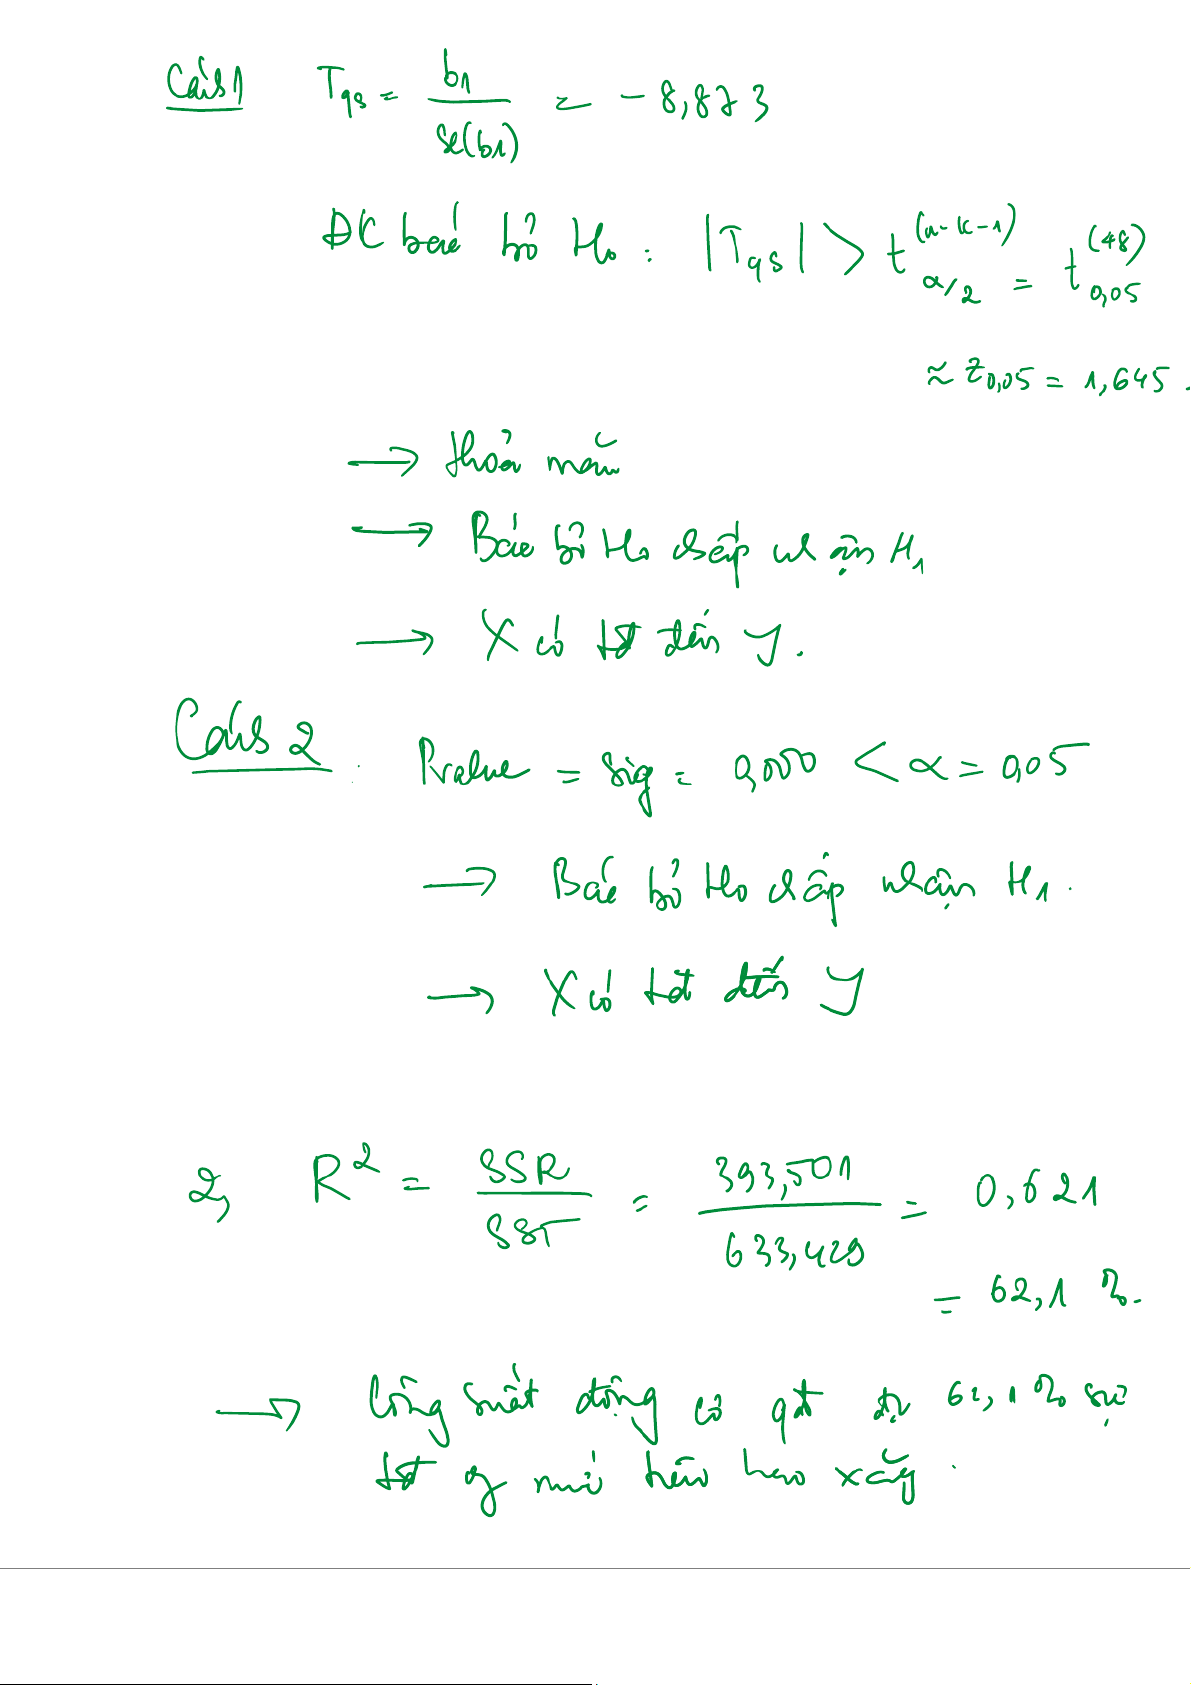 Cách 1 Tqs = b1 / se(b1) = -8,873
ĐK bác bỏ H0 : |Tqs| > t α/2 (n-k-1) = t 0,05 (48)
≈ Z0,05 = 1,645.
→ thoả mãn
→ Bác bỏ H0 chấp nhận H1
→ X có tđ đến Y.
Cách 2 Pvalue = sig = 0,000 < α = 0,05
→ Bác bỏ H0 chấp nhận H1.
→ X có tđ đến Y
2, R² = SSR / SST = 393,501 / 633,429 = 0,621
= 62,1 %.
→ Công suất động cơ qđ đc 62,1% sự
tđ mức tiêu hao xăng.